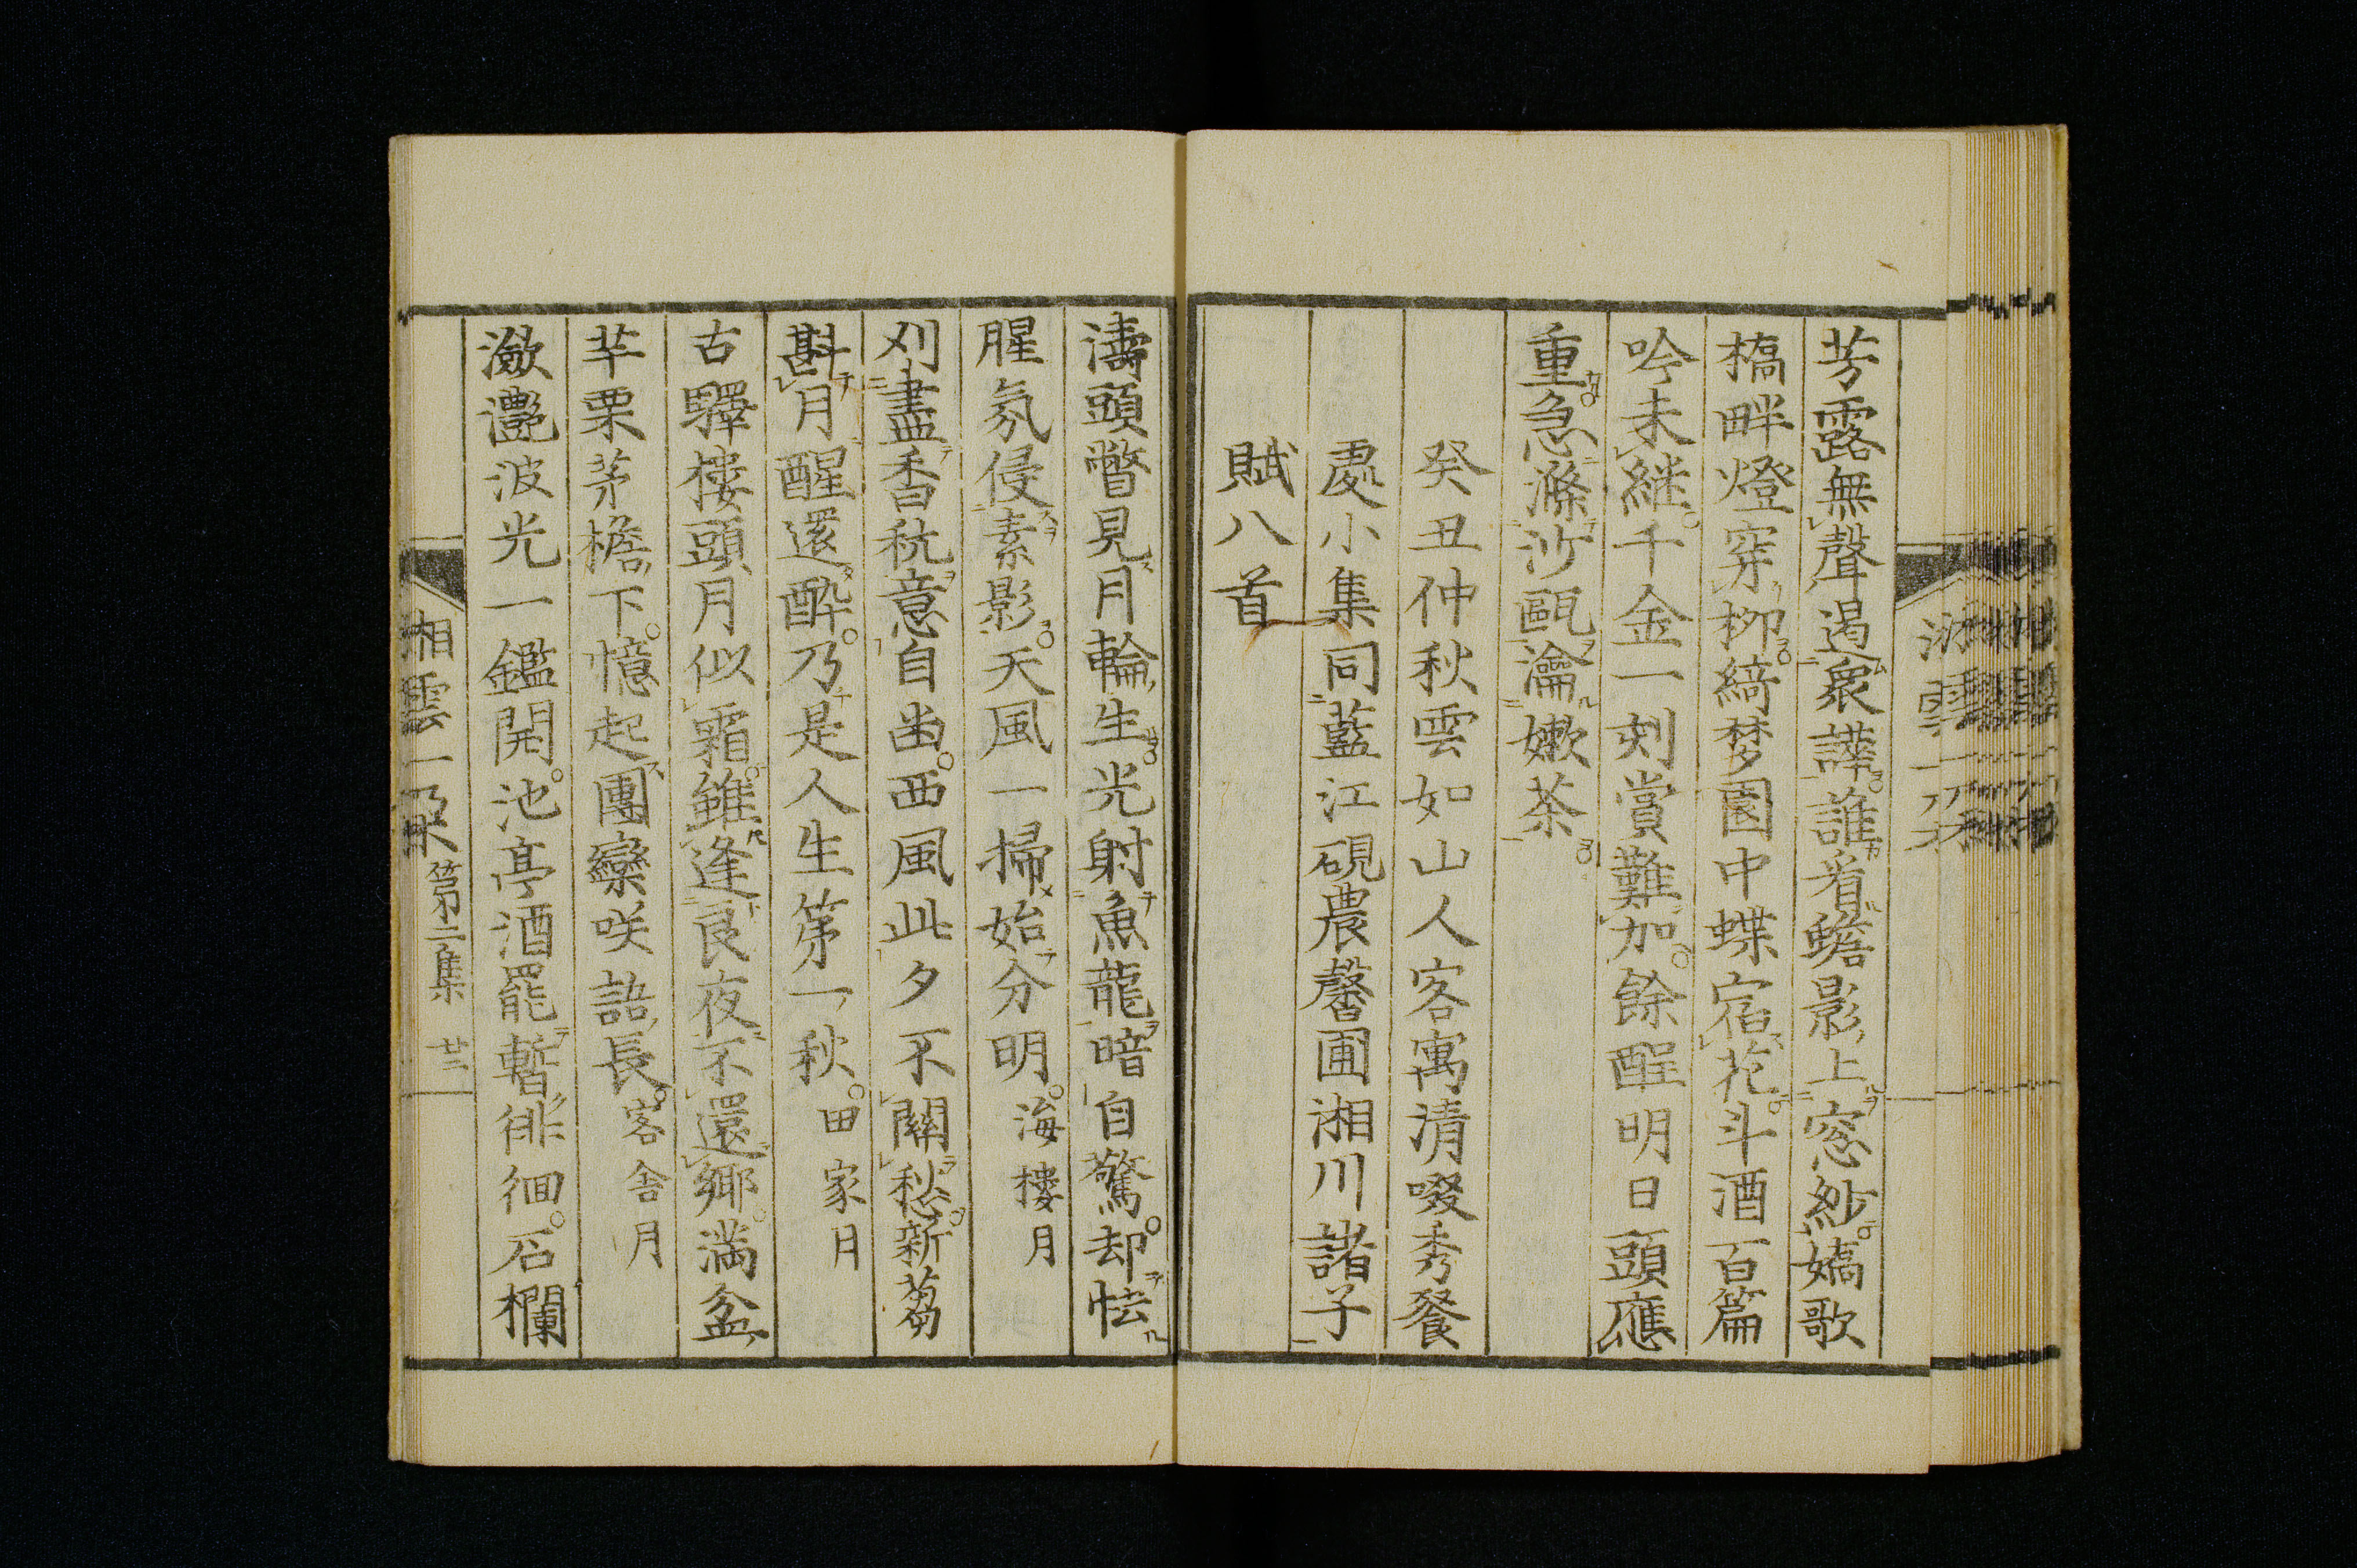 芳露無聲遏衆譁誰看蟾影上窓紗嬌歌
橋畔燈穿柳綺梦園中蝶宿花斗酒百篇
吟未継千金一刻賞難加餘酲明日頭應
重急滌沙甌瀹嫩茶
癸丑仲秋雲如山人客寓清啜秀餐
處小集同藍江硯農馨圃湘川諸子
賦八首
濤頭瞥見月輪生光射魚龍暗自驚却怯
腥氛侵素影天風一掃始分明海樓月
刈盡香秔意自幽西風此夕不關愁新蒭
斟月醒還酔乃是人生第一秋田家月
古驛樓頭月似霜雖逢良夜不還郷満盆
芋栗茅檐下憶起團欒咲語長客舎月
瀲灔波光一鑑開池亭酒罷暫徘徊石欄
湘雲一朶第二集 廿三